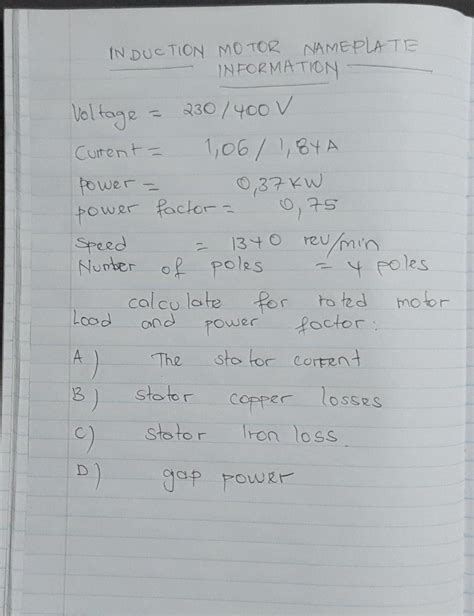 INDUCTION MOTOR NAMEPLATE
INFORMATION
Voltage = 230/400 V
Current = 1,06 / 1,84 A
Power = 0,37 KW
power factor = 0,75
Speed = 1340 rev/min
Number of poles = 4 poles
calculate for rated motor
Load and power factor:
A) The stator current
B) stator copper losses
C) stator Iron loss
D) gap power